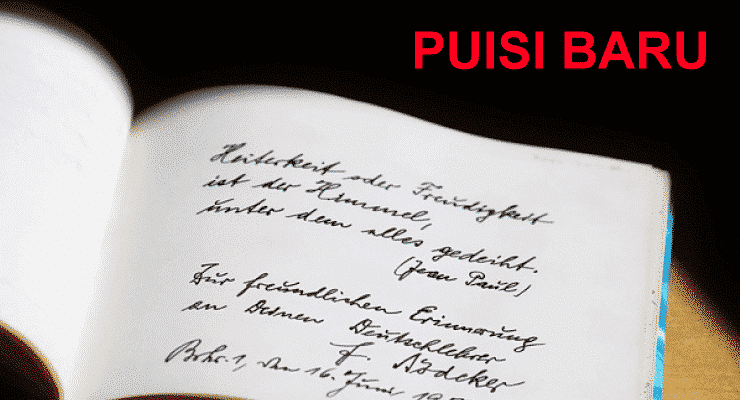 PUISI BARU
Heiterkeit oder Freudigkeit
ist der Himmel,
unter dem alles gedeiht.
(Jean Paul)
Zur freundlichen Erinnerung
an Deinen Deutschlehrer
F. Rödeker
den 16. Juni 19